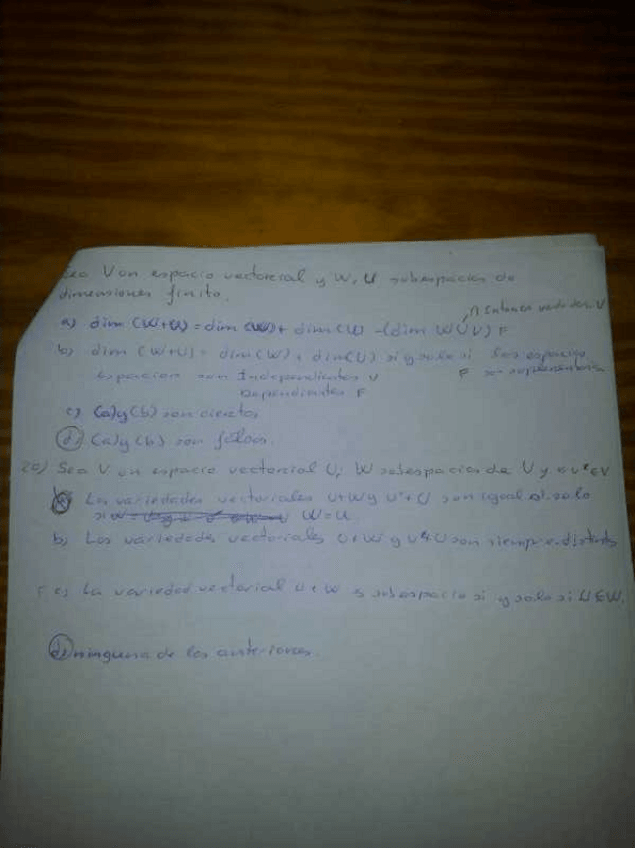 Sea V un espacio vectorial y W, U subespacios de
dimensiones finito.
∩ Entonces verdadera V
a) dim (W+U) = dim (W) + dim (U) - (dim W∪U) F
b) dim (W+U) = dim (W) + dim (U) si y solo si sus espacios
espacios son Independientes V F son suplementarios
Dependientes F
c) (a) y (b) son ciertas
d) (a) y (b) son falsas
20) Sea V un espacio vectorial U, W subespacios de V y
Las variedades vectoriales U+W y son igual si solo
si W = U
b) Las variedades vectoriales U+W y son siempre distintas
F c) La variedad vectorial U+W es subespacio si y solo si U∈W.
d) ninguna de las anteriores.